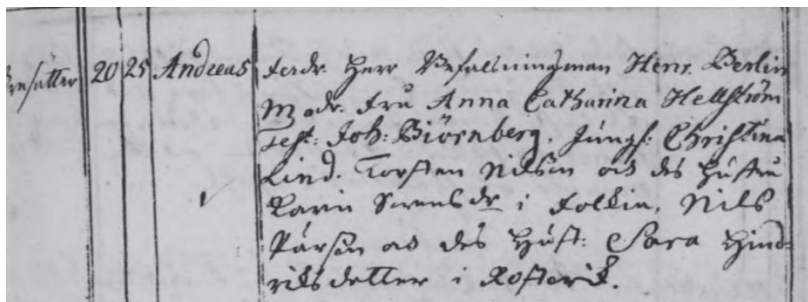 20 25 Andreas Fadr. Herr Befalningsman Henr. Berlin
Modr. Fru Anna Catharina Hellström
Test: Joh: Biörnberg, Jungf: Christina
Lind. Torsten Nilson och des Hustru
Karin Svensdr i Folkin, Nils
Pärson och des Hust: Sara Hind-
riksdotter i